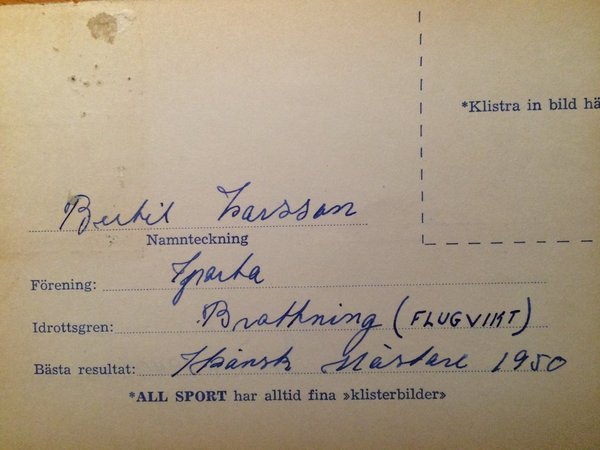 *Klistra in bild hä
Bertil Larsson
Namnteckning
Förening: Sparta
Idrottsgren: Brottning (FLUGVIKT)
Bästa resultat: Skånsk Mästare 1950
*ALL SPORT har alltid fina »klisterbilder»